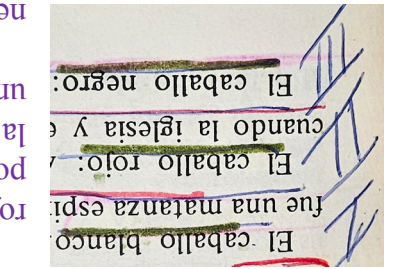 I El caballo blanco:
fue una matanza espi
II El caballo rojo:
cuando la iglesia y e
III El caballo negro:
roj
po
la
un
ne